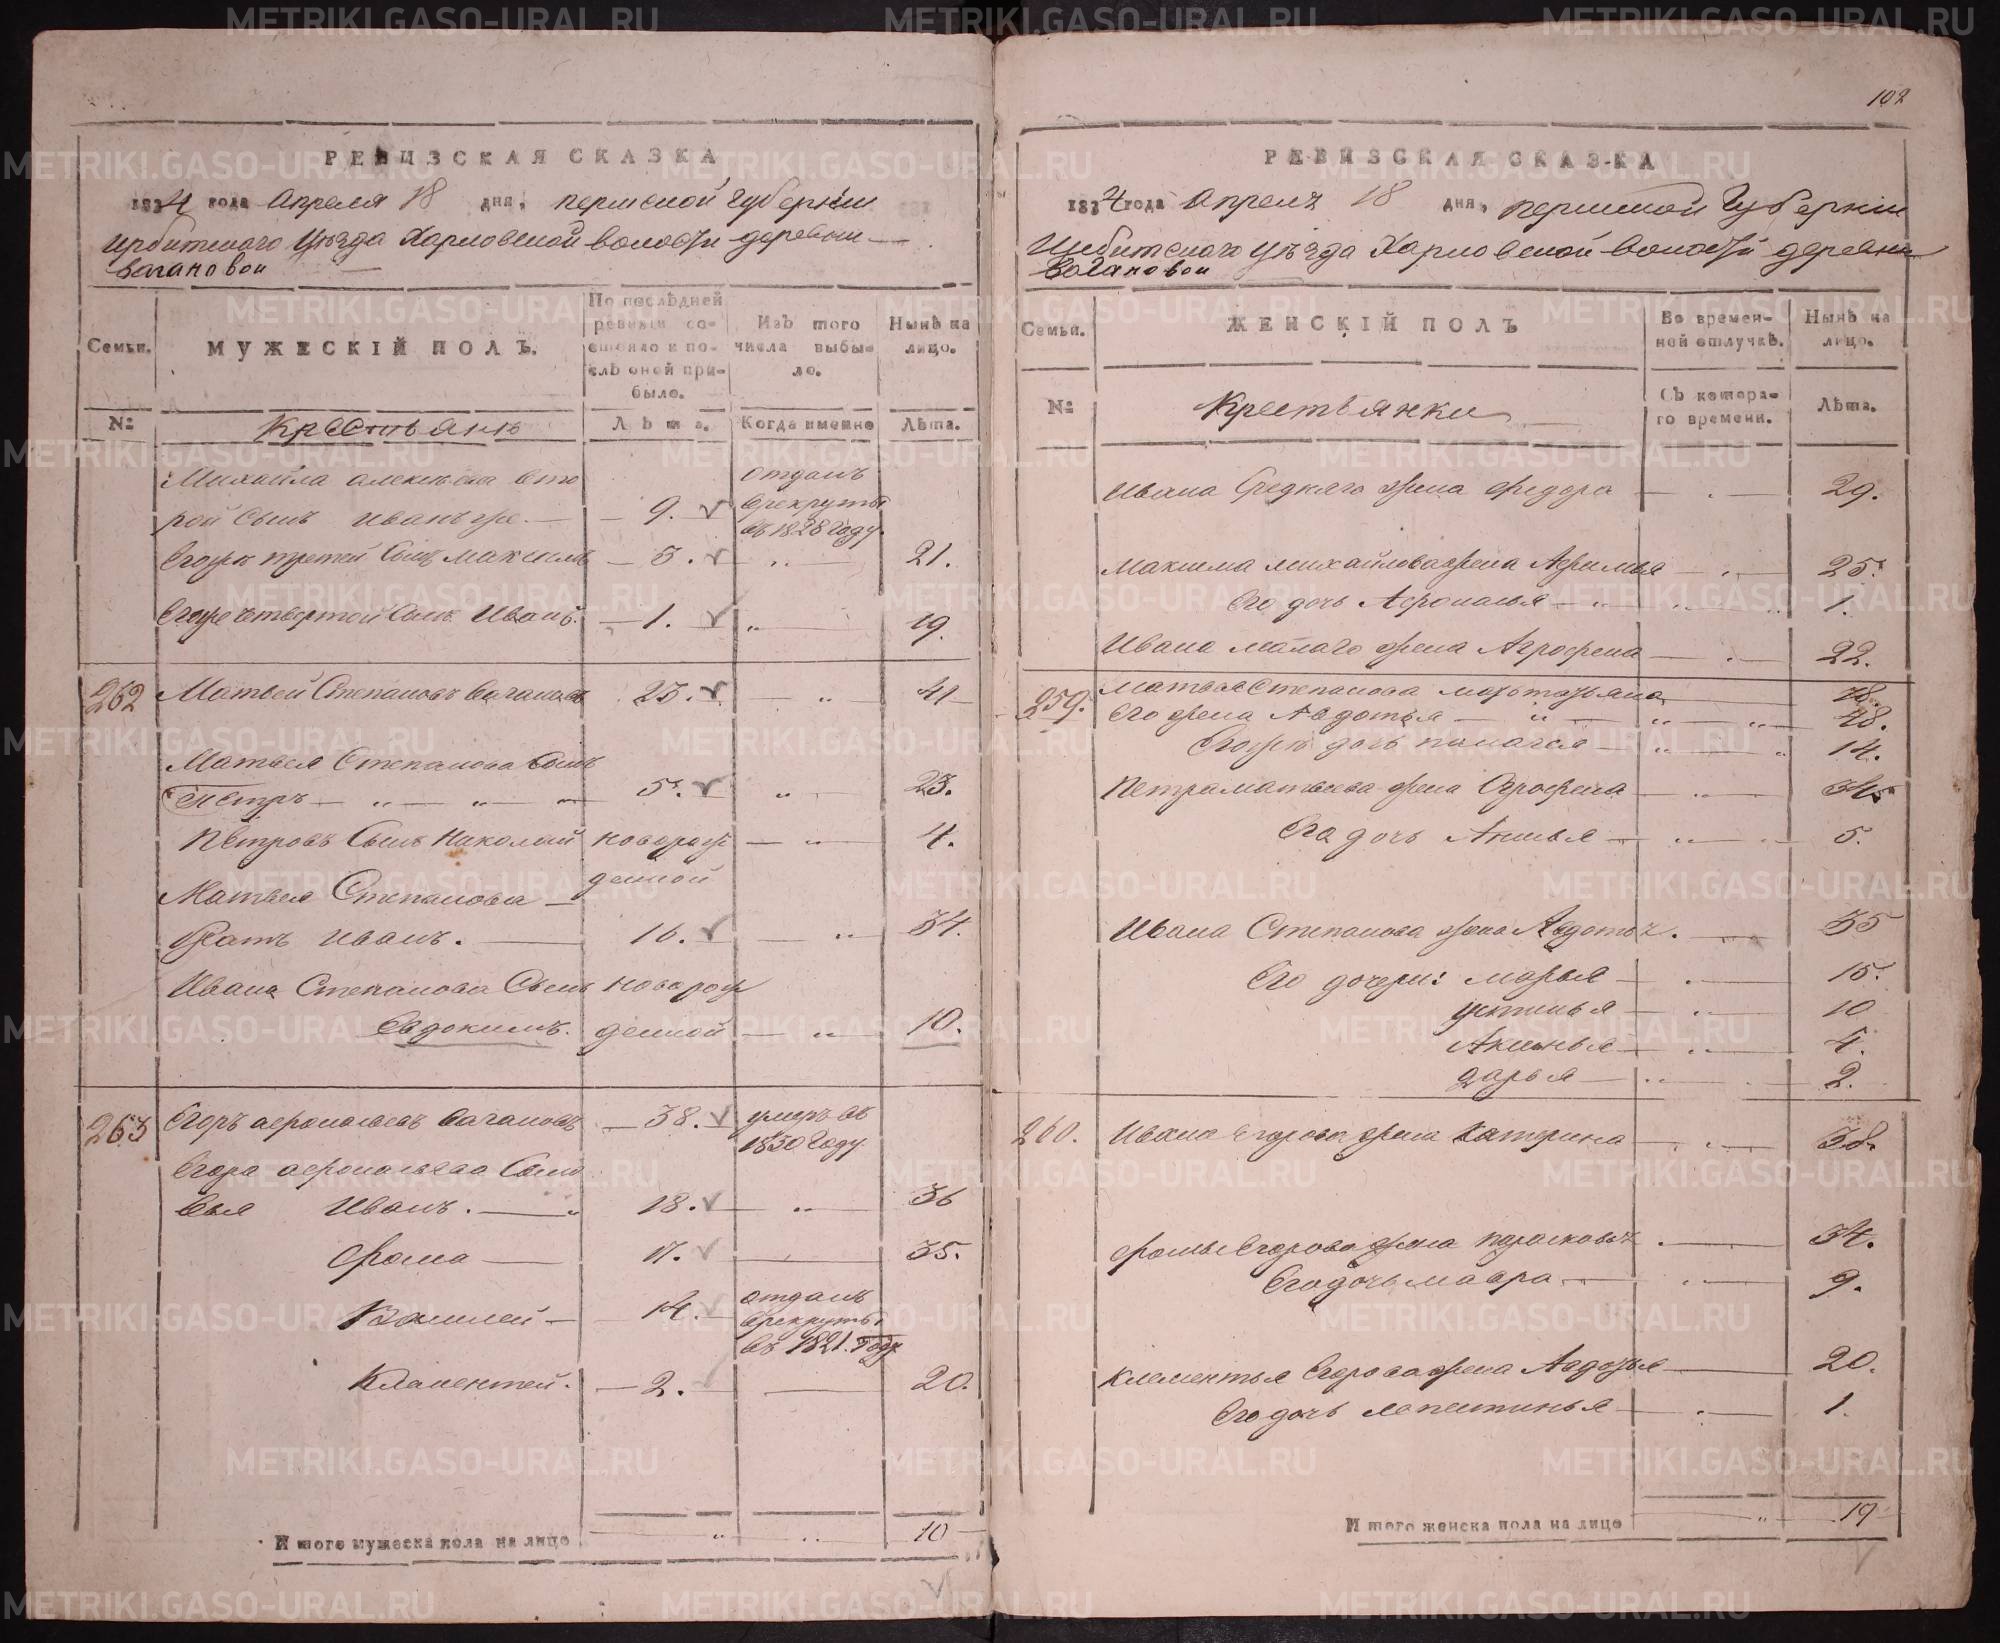 102
РЕВИЗСКАЯ СКАЗКА
1834 года Апреля 18 дня, пермской губернии
ирбитского уѣзда Харловской волости деревни
Вагановой
Семьи.
МУЖЕСКІЙ ПОЛЪ.
По послѣдней ревизіи состояло и послѣ оной прибыло.
Изъ того числа выбыло.
Нынѣ на лицо.
№
Крестьянъ
Лѣта.
Когда именно
Лѣта.
Михайла алексѣева вто
рой сынъ иванъ же — 9. отданъ врекруты въ 1828 году
Егожъ третей сынъ максимъ — 3. — 21.
Егоже четвертой сынъ Иванъ. — 1. — 19.
262 Матвей Степановъ Вагановъ 23. — 41
Матвея Степанова сынъ
Петръ — 5. — 23.
Петровъ сынъ Николай новорож — 4.
денной
Матвея Степанова —
братъ иванъ. — 16. — 34.
Ивана Степанова сынъ новорож
Евдокимъ. денной — 10.
263 Егоръ афонасьевъ вагановъ — 38. умеръ въ 1830 году
Егора афонасьева сыно
вья Иванъ. — 18. — 36
Фома — 17. — 35.
Василей — 14. отданъ врекруты въ 1821. году
Клементей. — 2. — 20.
Итого мужеска пола на лицо 10
РЕВИЗСКАЯ СКАЗКА
1834 года Апреля 18 дня, пермской губерніи
Ирбитского уѣзда Харловской волости деревни
Вагановой
Семьи.
ЖЕНСКІЙ ПОЛЪ
Во временной отлучкѣ.
Нынѣ на лицо.
№
Крестьянки
Съ котораго времени.
Лѣта.
Ивана Средняго жена федора — 29.
Максима михайлова жена Афимья — 25.
Его дочь Афонасья — 1.
Ивана малаго жена Агрофена — 22.
259. Матвея Степанова мать татьяна
Его жена Авдотья — 48.
Егожъ дочь палагея — 14.
Петра матвеева жена Огрофена
Его дочь Анисья — 5.
Ивана Степанова жена Авдотья. — 35
Его дочери: марья — 15.
устинья — 10
Акинья — 4.
дарья — 2.
260. Ивана егорова жена катерина — 38.
фомы Егорова жена парасковья. — 34.
Его дочь мавра — 9.
Клементья Егорова жена Авдотья — 20.
Его дочь лепестинья — 1.
Итого женска пола на лицо 19
METRIKI.GASO-URAL.RU